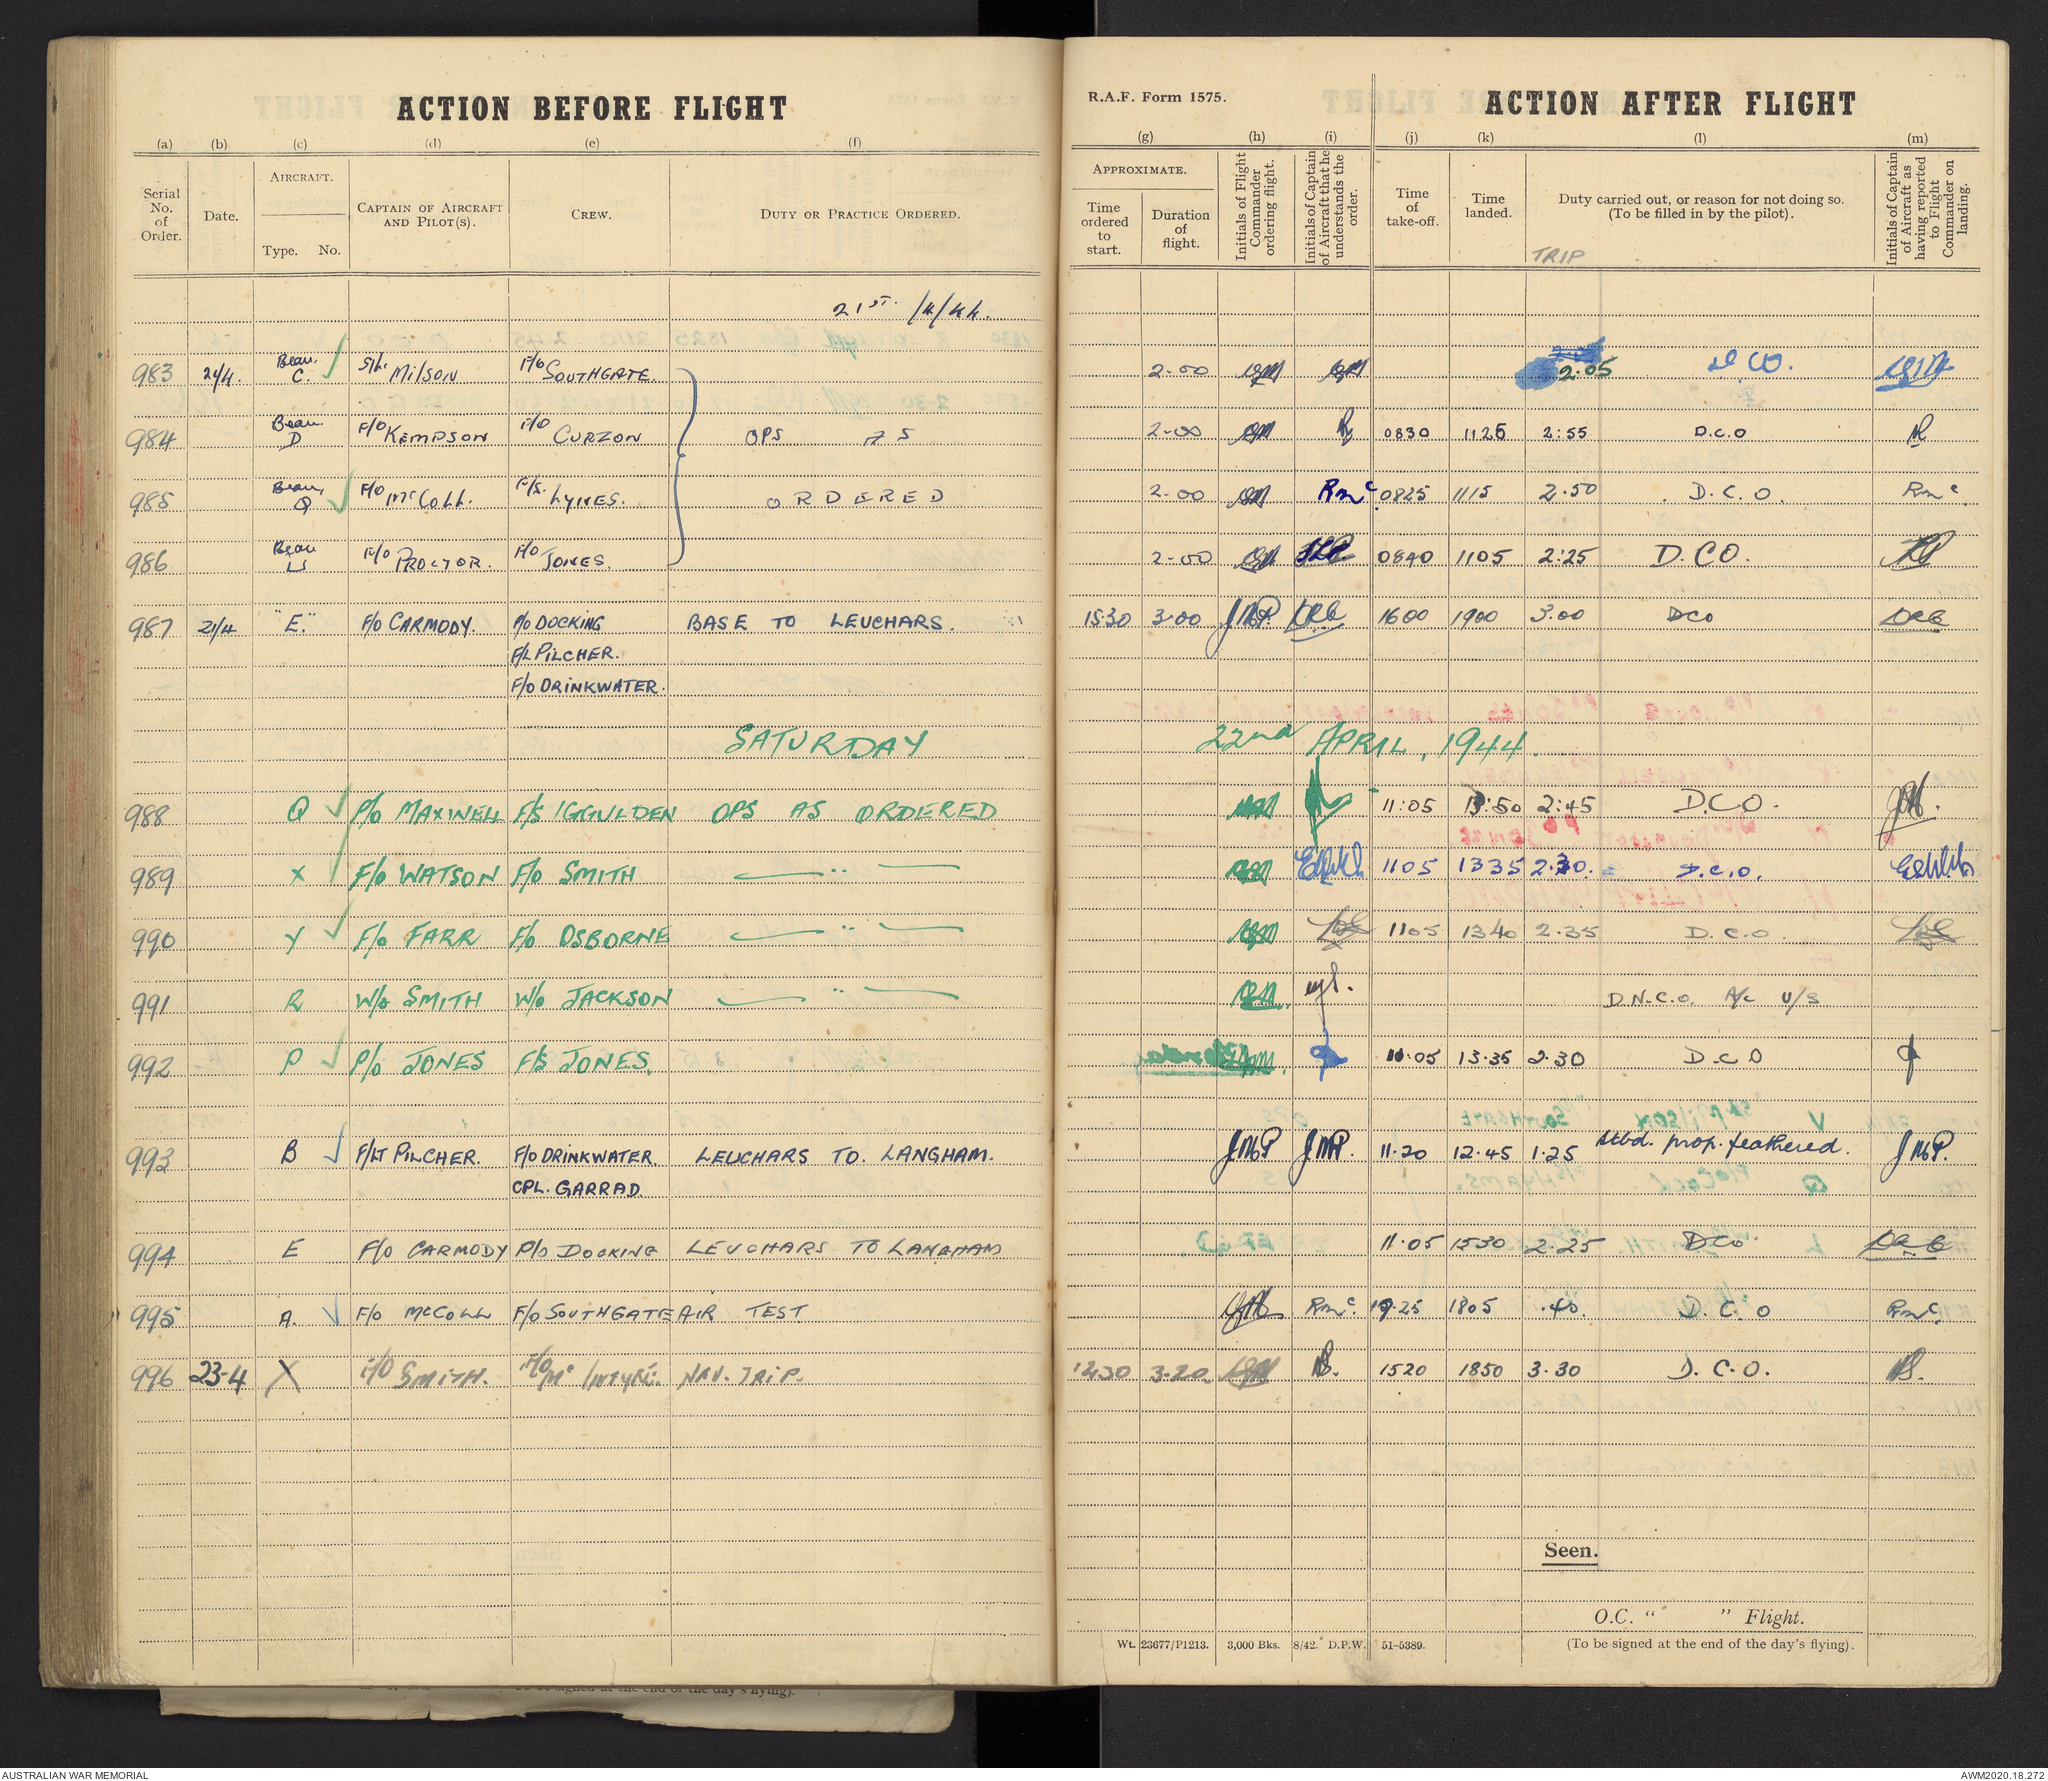 ACTION BEFORE FLIGHT
(a) (b) (c) (d) (e) (f)
Serial No. of Order. Date. AIRCRAFT. Type. No. CAPTAIN OF AIRCRAFT AND PILOT(S). CREW. DUTY OR PRACTICE ORDERED.
R.A.F. Form 1575. ACTION AFTER FLIGHT
(g) (h) (i) (j) (k) (l) (m)
APPROXIMATE. Time ordered to start. Duration of flight. Initials of Flight Commander ordering flight. Initials of Captain of Aircraft that he understands the order. Time of take-off. Time landed. Duty carried out, or reason for not doing so. (To be filled in by the pilot). Initials of Captain of Aircraft as having reported to Flight Commander on landing.
TRIP
21ST /4/44.
983 21/4. Beau. C. S/L. MILSON F/O SOUTHGATE. 2-00 2.05 D.CO.
984 Beau. D F/O KEMPSON F/O CURZON OPS AS 2-00 0830 1125 2:55 D.C.O
985 Beau, Q F/O McCOLL. F/S. LYNES. ORDERED 2-00 Rmc 0825 1115 2.50 D.C.O. Rmc
986 Beau U F/O PROCTOR. F/O JONES. 2-00 0840 1105 2:25 D.CO.
987 21/4 "E." F/O CARMODY. P/O DOCKING BASE TO LEUCHARS. 15.30 3.00 JMP. DRC 1600 1900 3.00 DCO DRC
F/L PILCHER.
F/O DRINKWATER.
SATURDAY 22nd APRIL, 1944.
988 Q P/O MAXWELL F/S IGGULDEN OPS AS ORDERED 11:05 13:50 2:45 D.C.O.
989 X F/O WATSON F/O SMITH —— " —— 1105 1335 2.30. D.C.O.
990 Y F/O FARR F/O OSBORNE —— " —— 1105 1340 2.35 D.C.O.
991 R W/O SMITH W/O JACKSON —— " —— D.N.C.O. A/c U/S
992 P P/O JONES F/S JONES. 11.05 13.35 2.30 D.C.O
993 B F/LT PILCHER. F/O DRINKWATER. LEUCHARS TO. LANGHAM. JMP JMP. 11.20 12.45 1.25 stbd. prop. feathered. JMP.
CPL. GARRAD
994 E F/O CARMODY P/O DOCKING LEUCHARS TO LANGHAM 11.05 1330 2.25 DCO DRC
995 A. F/O McCOLL F/O SOUTHGATE AIR TEST Rmc. 17.25 1805 .40. D.C.O Rmc.
996 23-4 X F/O SMITH. F/O Mc INTYRE. NAV. TRIP. 1230 3.20 1520 1850 3.30 D.C.O.
Seen.
O.C. " " Flight.
Wt. 23677/P1213. 3,000 Bks. 8/42. D.P.W. 51-5389. (To be signed at the end of the day's flying).
AUSTRALIAN WAR MEMORIAL AWM2020.18.272